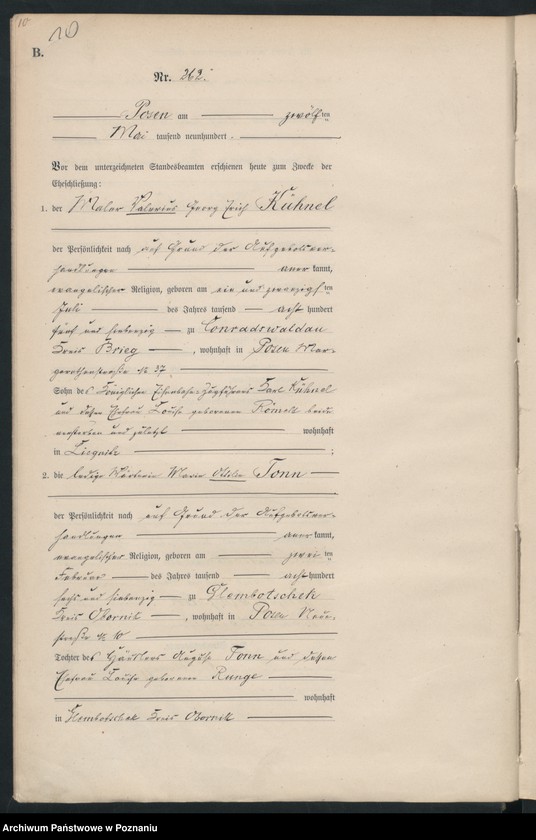 10
10
B.
Nr. 262.
Posen am zwölften
Mai tausend neunhundert.
Vor dem unterzeichneten Standesbeamten erschienen heute zum Zwecke der
Eheschließung:
1. der Maler Valerius Georg Erich Kühnel
der Persönlichkeit nach auf Grund des Aufgebotsver-
handlungen anerkannt,
evangelischer Religion, geboren am ein und zwanzigsten
Juli des Jahres tausend acht hundert
fünf und siebenzig zu Conradswaldau
Kreis Brieg, wohnhaft in Posen Mar-
garethenstraße № 37.
Sohn des Königlichen Eisenbahn-Zugführers Karl Kühnel
und dessen Ehefrau Louise geborenen beide
verstorben und zuletzt wohnhaft
in Liegnitz;
2. die ledige Maria Ottilie Tonn
der Persönlichkeit nach auf Grund der Aufgebotsver-
handlungen anerkannt,
evangelischer Religion, geboren am zweiten
Februar des Jahres tausend acht hundert
sechs und siebenzig zu Slembotschek
Kreis Obornik, wohnhaft in Posen Naue-
straße № 10
Tochter des Häuslers August Tonn und dessen
Ehefrau Louise geborene Runge
wohnhaft
in Slembotschek Kreis Obornik
Archiwum Państwowe w Poznaniu